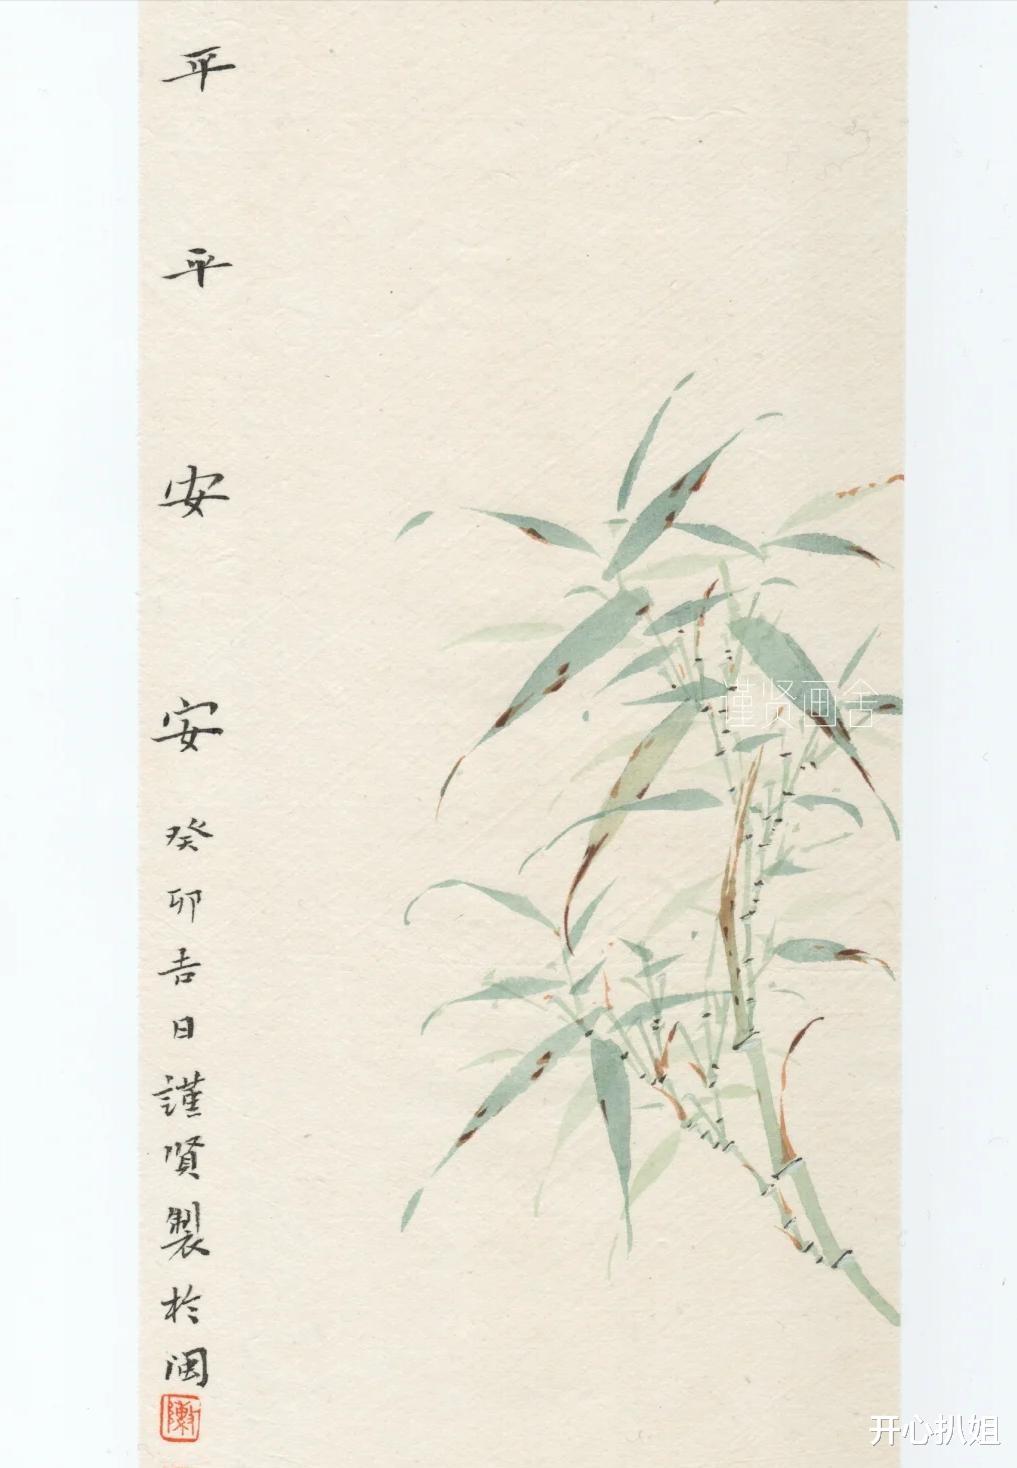 平平安安癸卯吉日謹賢製於闽
陳
谨贤画舍
开心扒姐